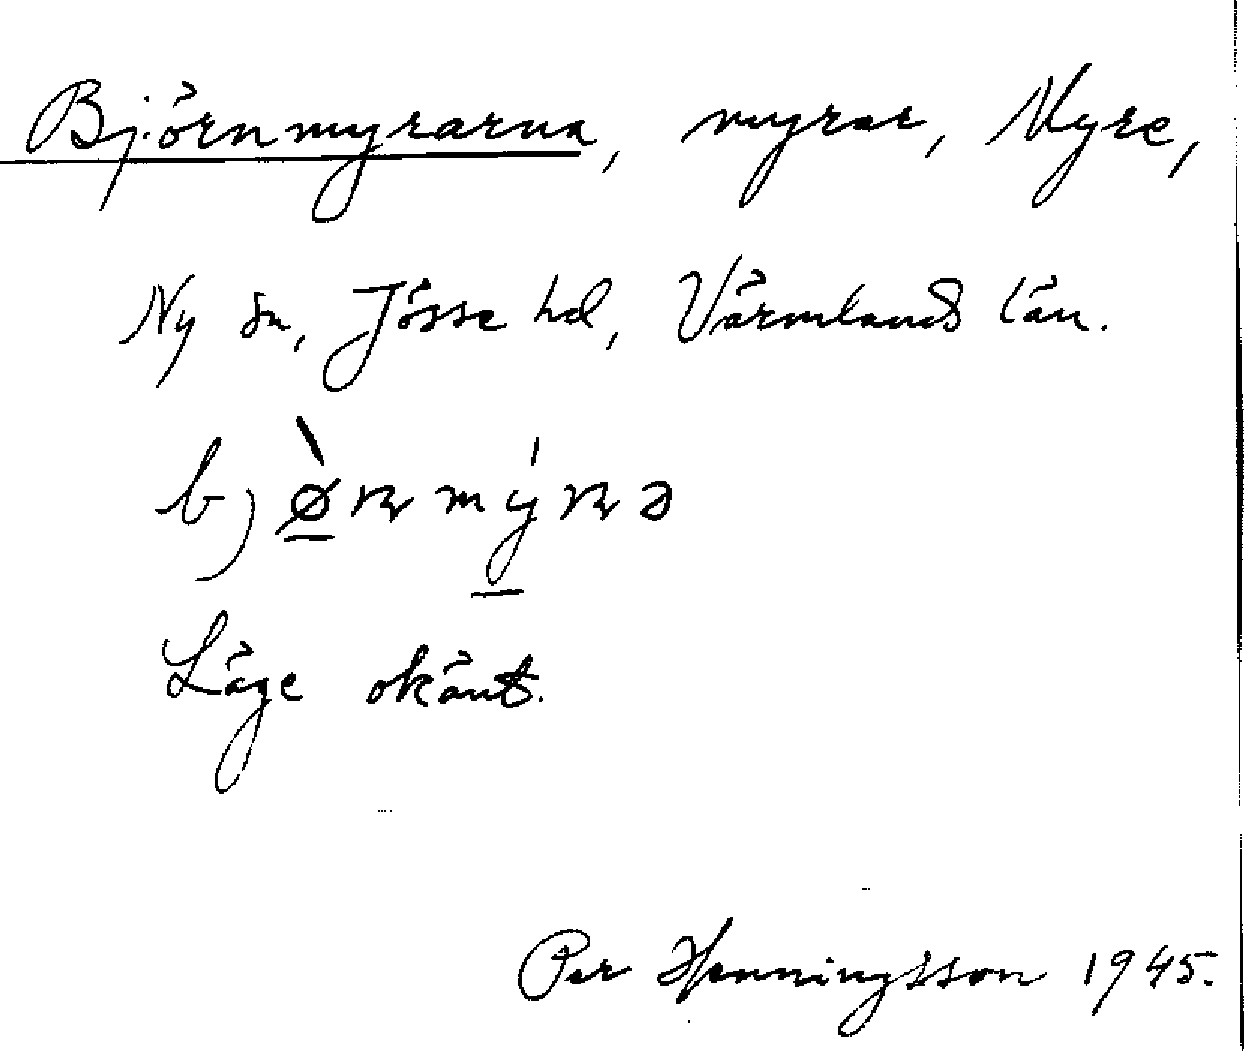 Björnmyrarna, myrar, Myre,
Ny sn, Jösse hd, Värmlands län.
b)
Läge okänt.
Per Henningsson 1945.